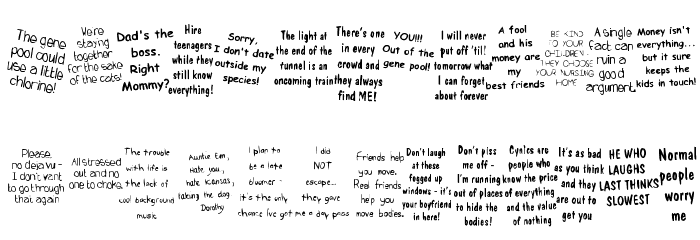 The gene
pool could
use a little
chlorine!
We're
staying
together
for the sake
of the cats!
Dad's the
boss.
Right
Mommy?
Hire
teenagers
while they
still know
everything!
Sorry,
I don't date
outside my
species!
The light at
the end of the
tunnel is an
oncoming train
There's one
in every
crowd and
they always
find ME!
YOU!!!
Out of the
gene pool!
I will never
put off 'til!
tomorrow what
I can forget
about forever
A fool
and his
money are
my
best friends
BE KIND
TO YOUR
CHILDREN.
THEY CHOOSE
YOUR NURSING
HOME
A single
fact can
ruin a
good
argument
Money isn't
everything...
but it sure
keeps the
kids in touch!
Please
no deja vu -
I don't want
to go through
that again
All stressed
out and no
one to choke.
The trouble
with life is
the lack of
cool background
music
Auntie Em,
Hate you,
hate Kansas,
taking the dog.
Dorothy
I plan to
be a late
bloomer -
it's the only
chance I've got
I did
NOT
escape...
they gave
me a day pass
Friends help
you move.
Real friends
help you
move bodies.
Don't laugh
at these
fogged up
windows - it's
your boyfriend
in here!
Don't piss
me off -
I'm running
out of places
to hide the
bodies!
Cynics are
people who
know the price
of everything
and the value
of nothing
It's as bad
as you think
and they
are out to
get you
HE WHO
LAUGHS
LAST THINKS
SLOWEST
Normal
people
worry
me